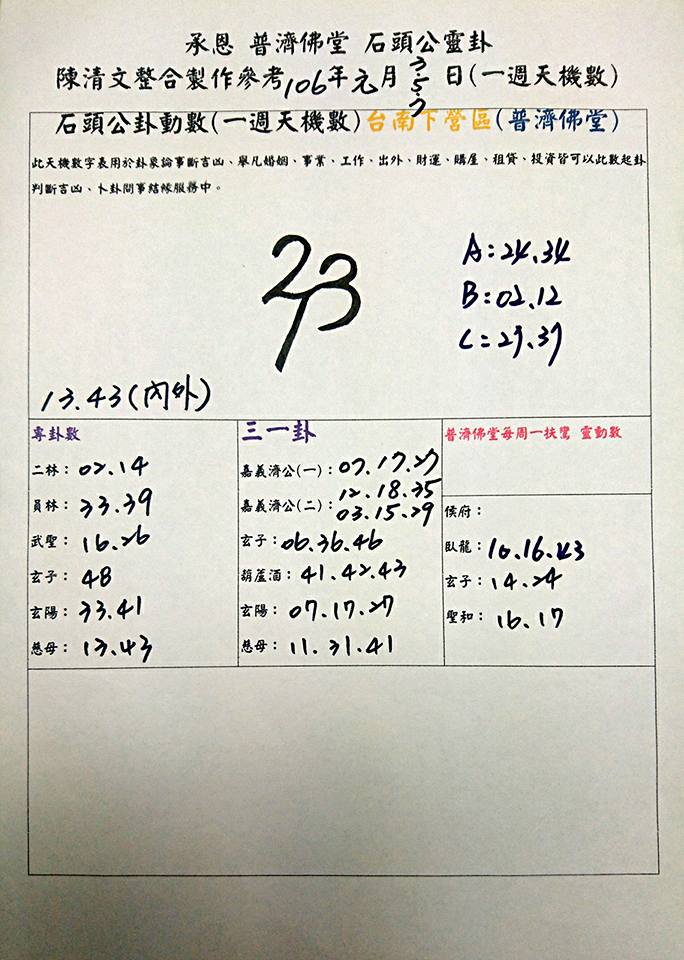 承恩 普濟佛堂 石頭公靈卦
陳清文整合製作參考106年元月3.5.7日(一週天機數)
石頭公卦動數(一週天機數)台南下營區(普濟佛堂)
此天機數字表用於卦象論事斷言凶、舉凡婚姻、事業、工作、出外、財運、購屋、租貸、投資皆可以此數起卦
判斷吉凶、卜卦問事結緣服務中。
A:24.34
B:02.12
C:27.37
13.43(內外)
專卦數
二林:02.14
員林:33.39
武聖:16.26
玄子:48
玄陽:33.41
慈母:13.43
三一卦
嘉義濟公(一):07.17.27
嘉義濟公(二):12.18.35
03.15.29
玄子:06.36.46
葫蘆酒:41.42.43
玄陽:07.17.27
慈母:11.31.41
普濟佛堂每周一扶鸞 靈動數
侯府:
臥龍:10.16.43
玄子:14.24
聖和:16.17